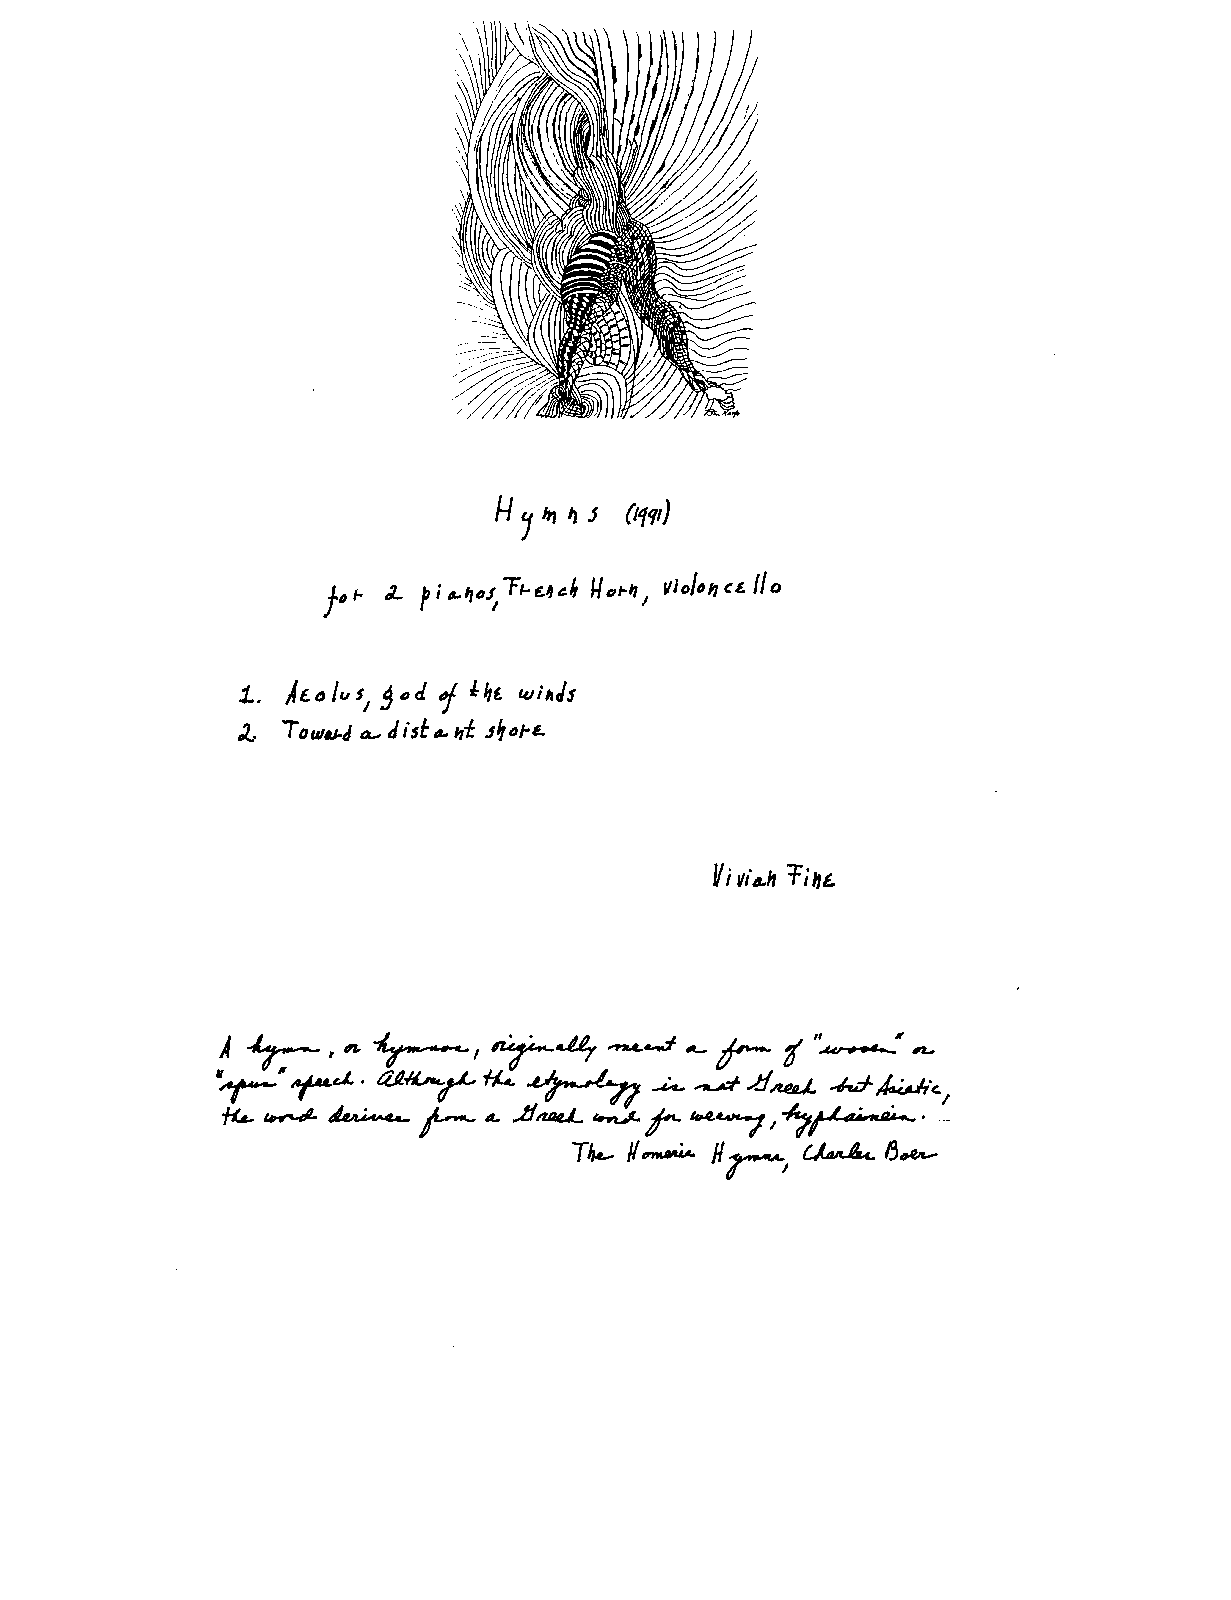 Hymns (1991)
for 2 pianos, French Horn, violoncello
1. Aeolus, god of the winds
2. Toward a distant shore
Vivian Fine
A hymn, or hymnos, originally meant a form of "woven" or
"spun" speech. Although the etymology is not Greek but Asiatic,
the word derives from a Greek word for weaving, hyphainein.
The Homeric Hymns, Charles Boer